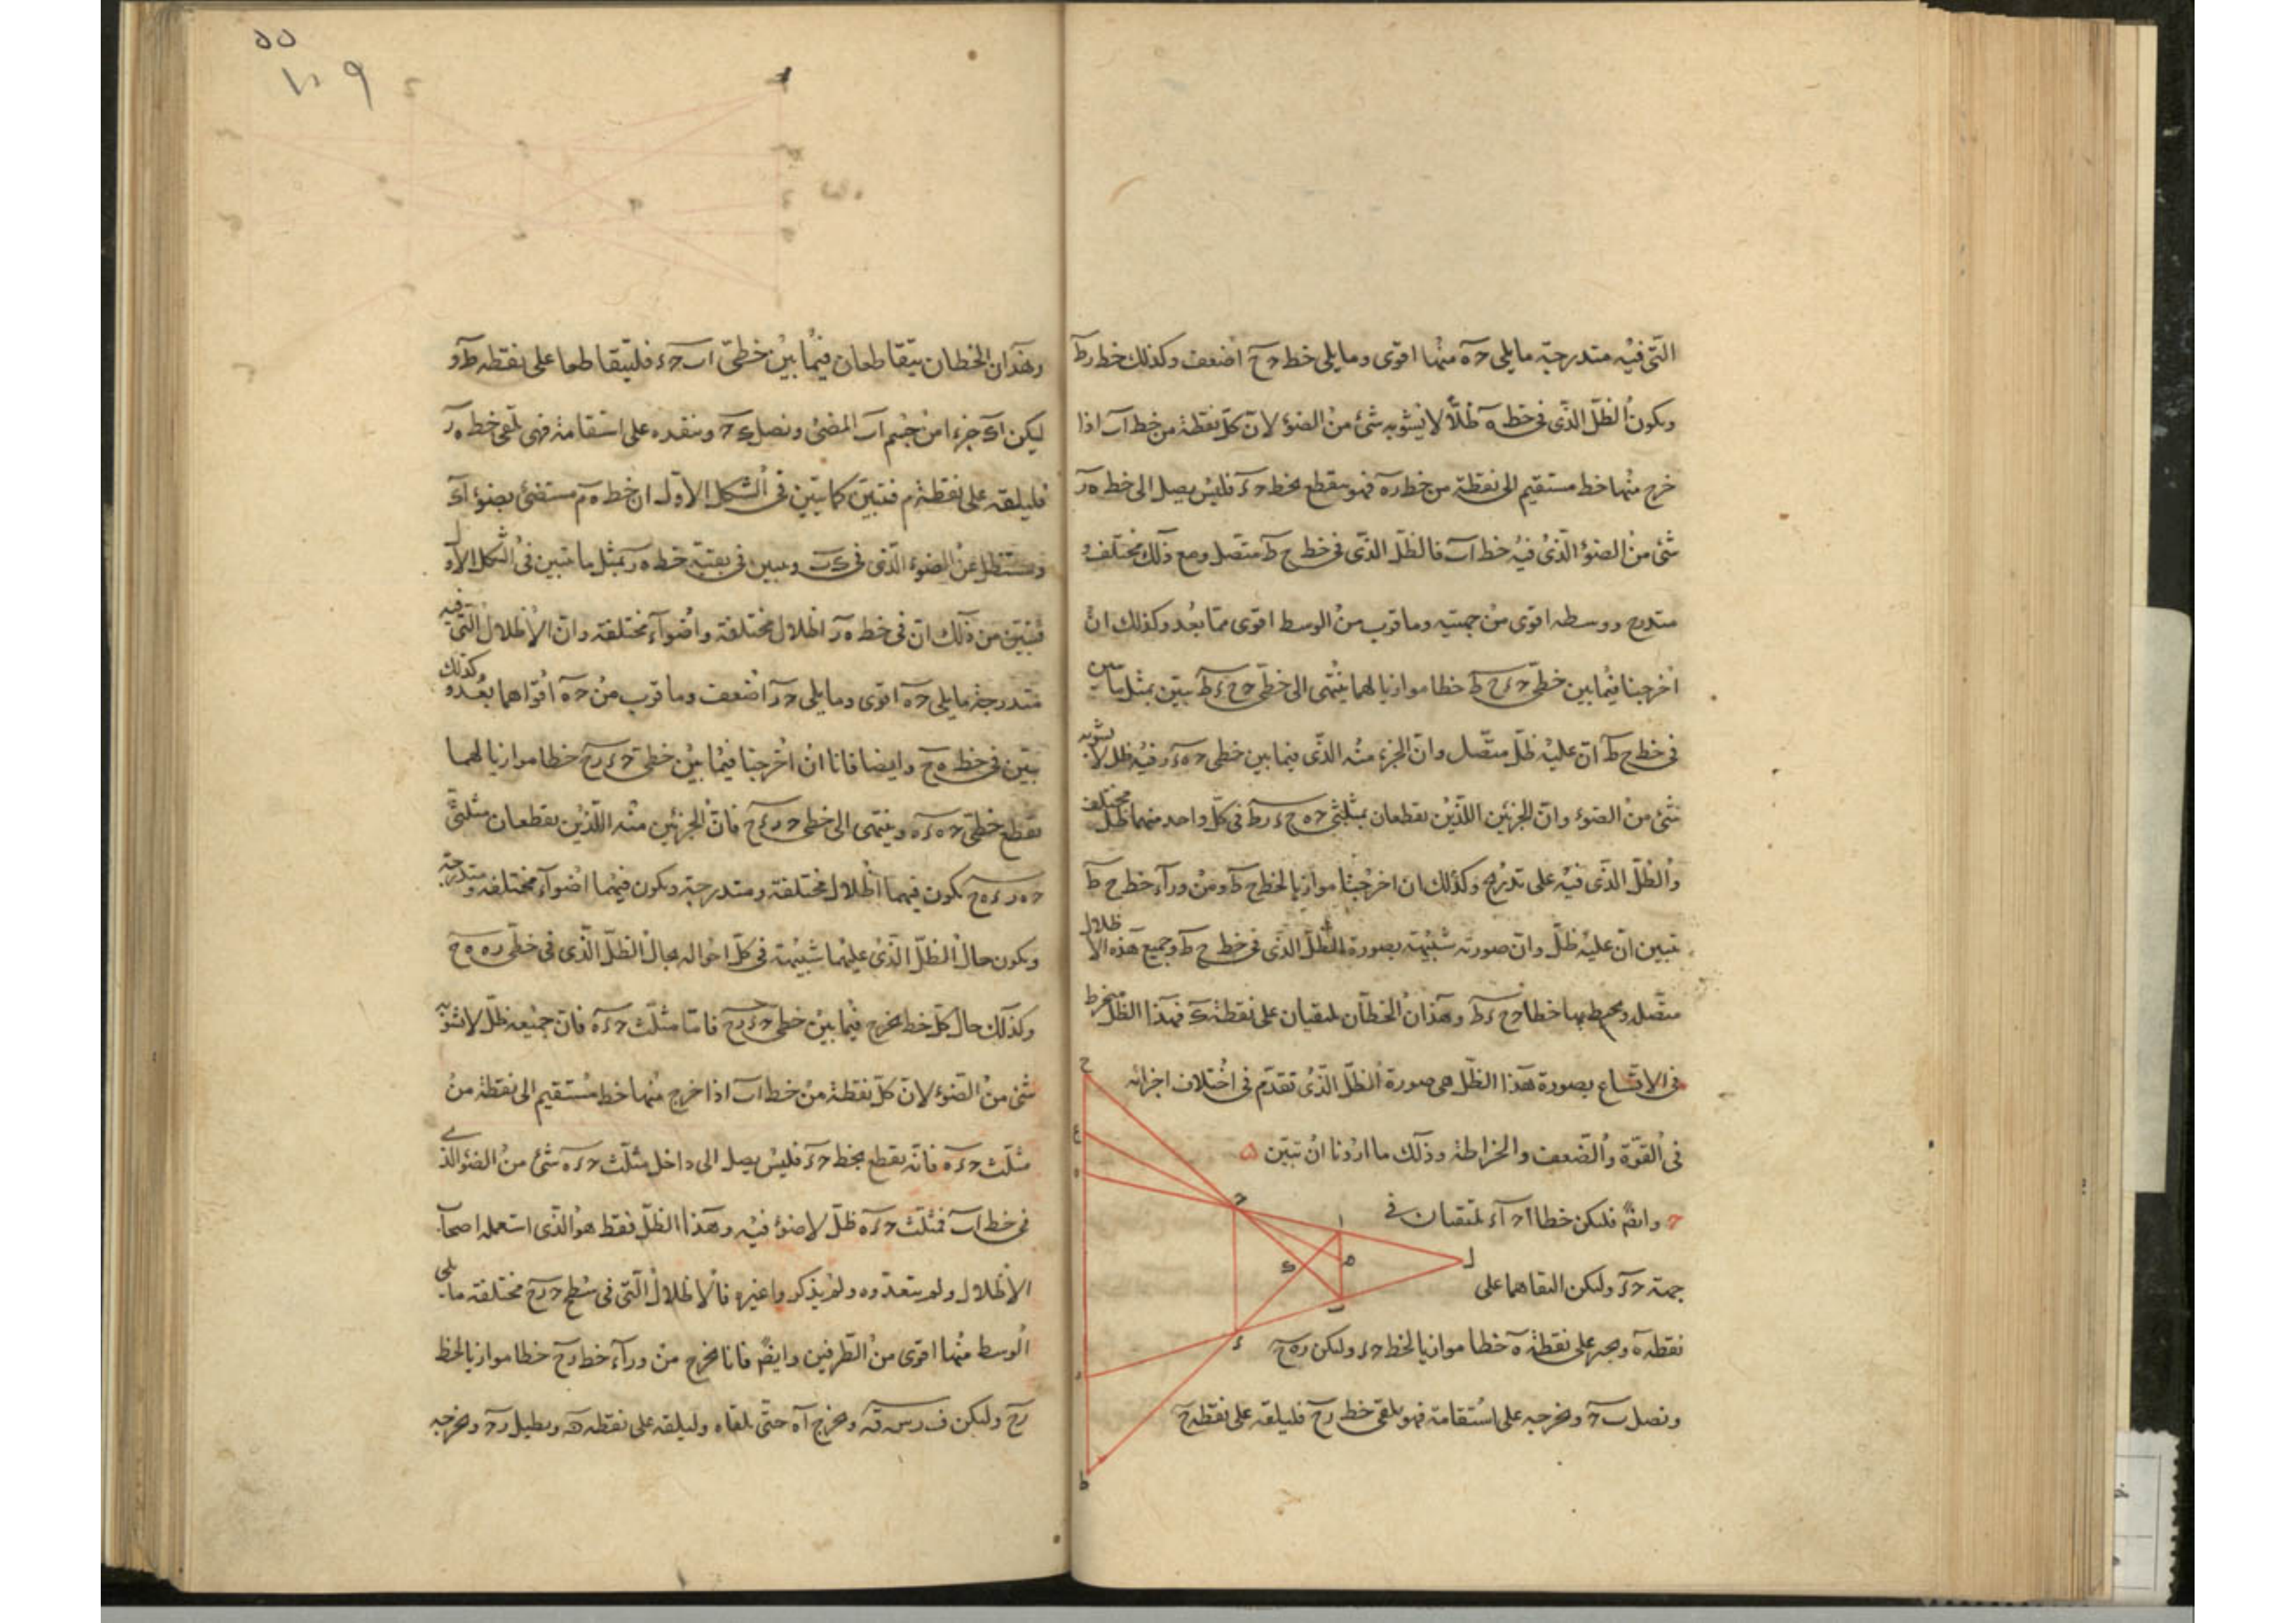 التى فيه متدرجة ما يلى حه منها اقوى وما يلى خط دح اضعف وكذلك خط رط
ويكون الظل الذى فى خط ه ظلا لا يشوبه شئ من الضوء لان كل نقطة من خط اب اذا
خرج منها خط مستقيم الى نقطة من خط ره فهو يقطع بخط حء فليس يصل الى خط ه ر
شئ من الضوء الذى فيه خط اب فالظل الذى فى خط ح ط متصل ومع ذلك مختلف و
متدرج ووسطه اقوى من جهتيه وما قرب من الوسط اقوى مما بعد وكذلك ان
اخرجنا فيما بين خطى حء ح ط خطا موازيا لهما ينتهى الى خطى حح ءط يبين بمثل ما بين
فى خط ح ط ان عليه ظل متصل وان الجزء منه الذى فيما بين خطى حه ءر فيه ظل لا يشوبه
شئ من الضوء وان الجزئين اللذين يقطعان بمثلثى حه ح ءرط فى كل واحد منهما ظل مختلف
والظل الذى فيه على تدرج وكذلك ان اخرجنا موازيا لخط ح ط ومن وراء خط ح ط
تبين ان عليه ظل وان صورته شبيهة بصورة الظل الذى فى خط ح ط وجميع هذه الاظلال
متصل ومحيط بها خطا حح ءط وهذان الخطان يلتقيان على نقطة ك فهذا الظل منخرط
فى الاتساع بصورة هذا الظل هى صورة الظل الذى تقدم فى اختلاف اجزائه
فى القوة والضعف والخراطة وذلك ما اردنا ان نبين ه
ح وايضً فليكن خطا احـ اء يلتقيان فى
جهة حء وليكن التقاهما على
نقطة ه ونجيز على نقطة ه خطا موازيا لخط حء وليكن ره ح
ونصل ب ح ونخرجه على استقامة فهو يلقى خط رح فليلقه على نقطة ح
٥٥
١٠٩
وهذان الخطان يتقاطعان فيما بين خطى اب حء فليتقاطعا على نقطة ط و
ليكن اك جزءا من جسم اب المضئ ونصل ك ح وننفذه على استقامة فهى تلقى خط ه ر
فليلقه على نقطة م فتبين كما تبين فى الشكل الاول ان خط ه م مستضئ بضوء اك
ومستظل عن الضوء الذى فى ك ب وتبين فى بقية خط ه ر بمثل ما تبين فى الشكل الاول
فتبين من ذلك ان فى خط ه ر اظلال مختلفة واضواء مختلفة وان الاظلال التى فيه
متدرجة ما يلى حه اقوى وما يلى حر اضعف وما قرب من حه اقواهما بعد وكذلك
تبين فى خط ه ح وايضا فانا ان اخرجنا فيما بين خطى حء رح خطا موازيا لهما
يقطع خطى حه ءه وينتهى الى خطى حر ءح فان الجزئين منه اللذين يقطعان مثلثى
حه ر ءه ح يكون فيهما اظلال مختلفة ومتدرجة ويكون فيهما اضواء مختلفة ومتدرجة
ويكون حال الظل الذى عليهما شبيهة فى كل احواله بحال الظل الذى فى خطى ره ه ح
وكذلك حال كل خط يخرج فيما بين خطى حء رح فاما مثلث حءه فان جميعه ظل لا يشوبه
شئ من الضوء لان كل نقطة من خط اب اذا خرج منها خط مستقيم الى نقطة من
مثلث حءه فانه يقطع بخط حء فليس يصل الى داخل مثلث حءه شئ من الضوء الذى
فى خط اب فمثلث حءه ظل لا ضوء فيه وهذا الظل فقط هو الذى استعمله اصحاب
الاظلال ولم يتعدوه ولم يذكروا غيره فالاظلال التى فى سطح حءرح مختلفة ما يلى
الوسط منها اقوى من الطرفين وايضً فانا نخرج من وراء خط رح خطا موازيا لخط
رح وليكن ف رس ق ونخرج اه حتى يلقاه وليلقه على نقطة ه ونطيل رح ونخرجه